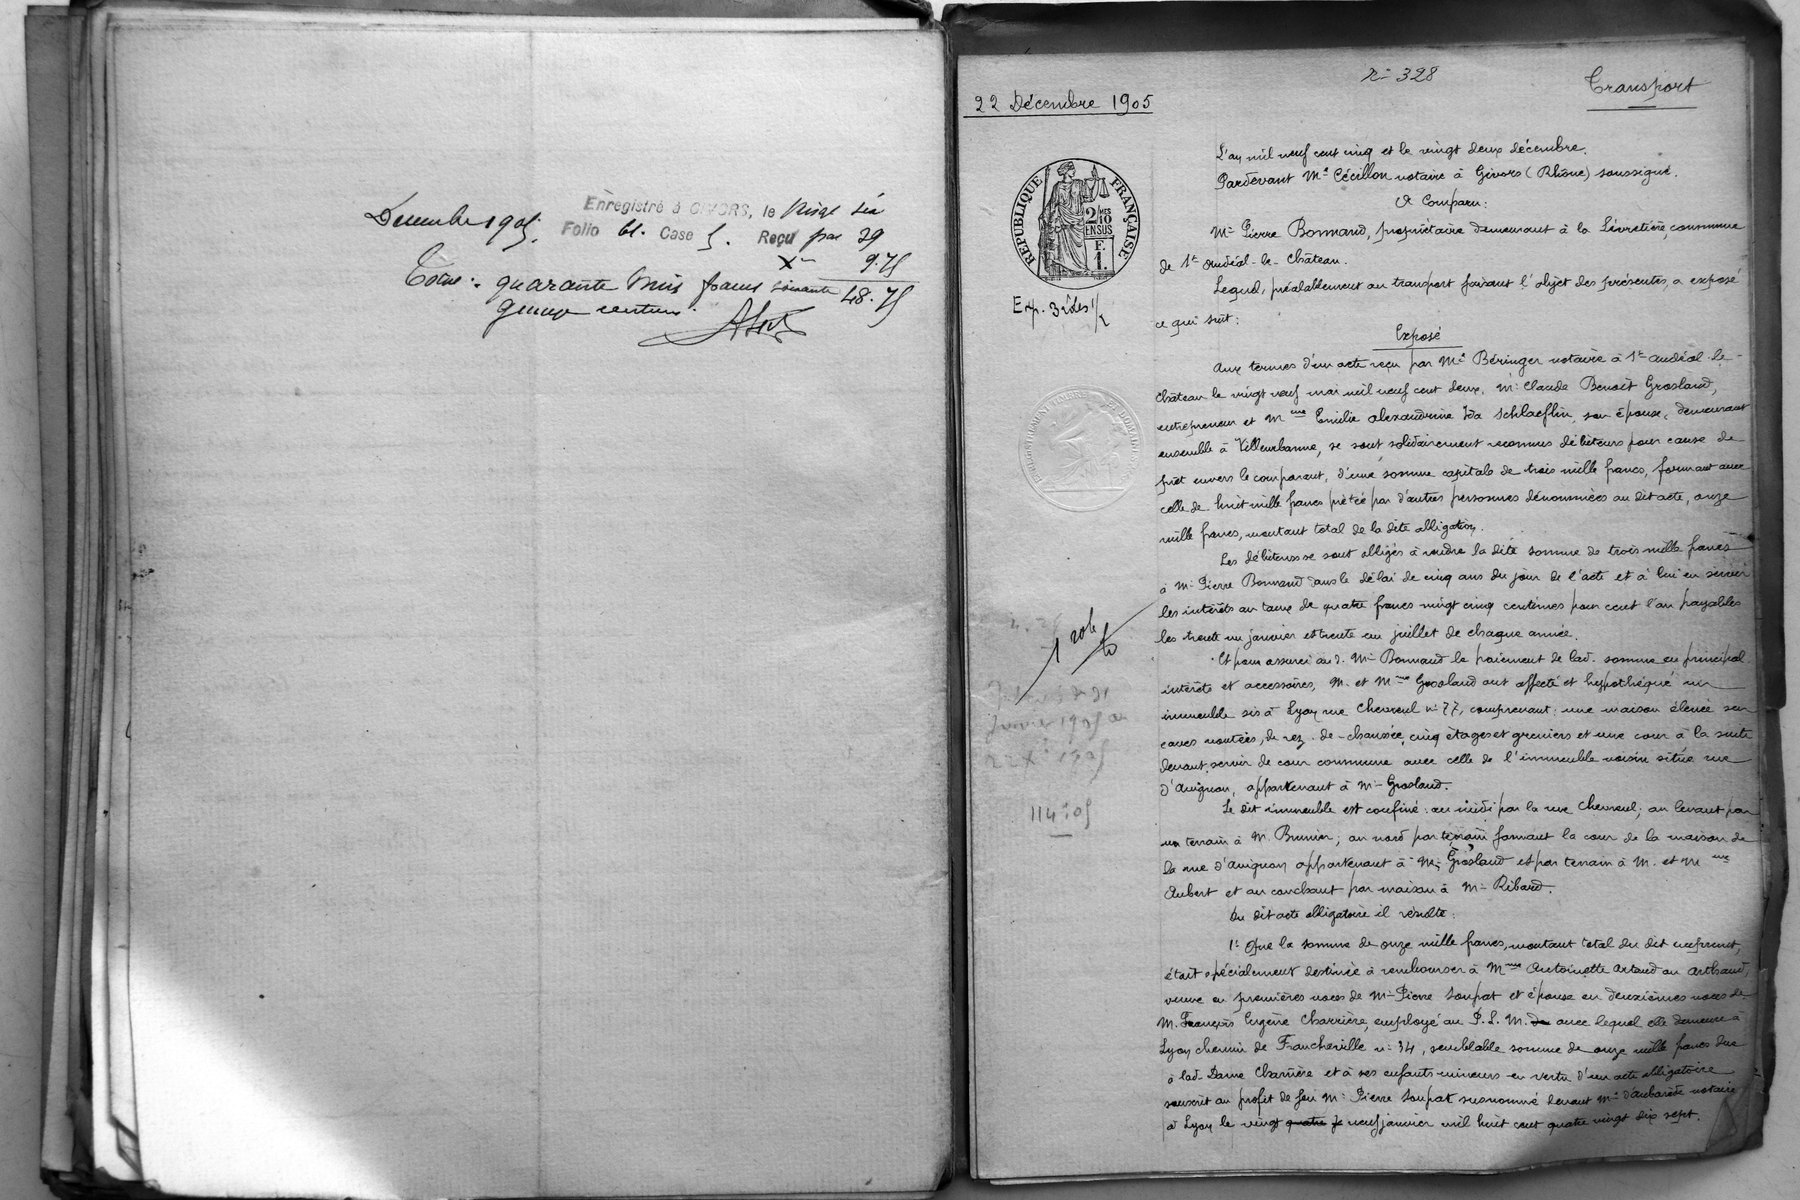 Enregistré à GIVORS, le Vingt six
Décembre 1905.
Folio 61. Case 5. Reçu par 39
Xes 9.75
Total: quarante huit francs soixante 48.75
quinze centimes.
22 Décembre 1905
No 328
Transport
RÉPUBLIQUE FRANÇAISE
2/10 MES
EN SUS
F.
1.
Exp. 3 rôles 1/2
1 rôle
Janvier 1905 au
22 Xe 1905
114:05
L'an mil neuf cent cinq et le vingt deux décembre.
Pardevant Me Cécillon notaire à Givors (Rhône) soussigné.
A Comparu:
Mr Pierre Bonnand, propriétaire demeurant à la Livretière, commune
de St Andéol-le-Château.
Lequel, préalablement au transport faisant l'objet des présentes, a exposé
ce qui suit:
Exposé
Aux termes d'un acte reçu par Me Béringer notaire à St Andéol-le-
Château le vingt neuf mai mil neuf cent deux, Mr Claude Benoît Grosland,
entrepreneur et Mme Emilie Alexandrine Ida Schlaeflin, son épouse, demeurant
ensemble à Villeurbanne, se sont solidairement reconnus débiteurs pour cause de
prêt envers le comparant, d'une somme capitale de trois mille francs, formant avec
celle de huit mille francs prêtée par d'autres personnes dénommées au dit acte, onze
mille francs, montant total de la dite obligation.
Les débiteurs se sont obligés à rendre la dite somme de trois mille francs
à Mr Pierre Bonnand dans le délai de cinq ans du jour de l'acte et à lui en servir
les intérêts au taux de quatre francs vingt cinq centimes pour cent l'an payables
les trente un janvier et trente un juillet de chaque année.
Et pour assurer au d. Mr Bonnand le paiement de lad. somme en principal
intérêts et accessoires, M. et Mme Grosland ont affecté et hypothéqué un
immeuble sis à Lyon rue Chevreul no 77, comprenant: une maison élevée sur
caves voutées, de rez-de-chaussée, cinq étages et greniers et une cour à la suite
devant servir de cour commune avec celle de l'immeuble voisin situé rue
d'Avignon, appartenant à Mr Grosland.
Le dit immeuble est confiné: au midi par la rue Chevreul; au levant par
un terrain à M. Brunier; au nord par terrain formant la cour de la maison de
la rue d'Avignon appartenant à Mr Grosland et par terrain à M. et Mme
Aubert et au couchant par maison à Mr Ribaud.
Du dit acte obligatoire il résulte:
1o Que la somme de onze mille francs, montant total du dit emprunt,
était spécialement destinée à rembourser à Mme Antoinette Artaud ou Arthaud,
veuve en premières noces de Mr Pierre Loupat et épouse en deuxièmes noces de
M. François Eugène Charrière, employé au P. L. M. de avec lequel elle demeure à
Lyon chemin de Francheville no 34, semblable somme de onze mille francs due
à lad. Dame Charrière et à ses enfants mineurs en vertu d'un acte obligatoire
souscrit au profit de feu Mr Pierre Loupat susnommé devant Me d'Aubarède notaire
à Lyon le vingt quatre je neuf janvier mil huit cent quatre vingt dix sept.